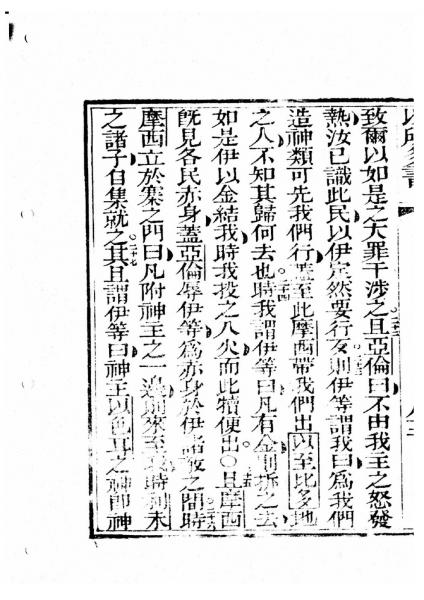 致爾以如是之大罪干涉之且亞倫曰不由我主之怒發
熱汝已識此民以伊定然要行亥則伊等謂我曰爲我們
造神類可先我們行蓋至此摩西帶我們出以至比多地
之人不知其歸何去也時我謂伊等曰凡有金則拆之去
如是伊以金結我時我投之入火而此犢便出○且摩西
旣見各民亦身蓋亞倫辱伊等爲赤身於伊諸敵之間時
摩西立於寨之門曰凡附神主之一邊則來至我時利未
之諸子自集就之其且謂伊等曰神主以色耳之神卽神